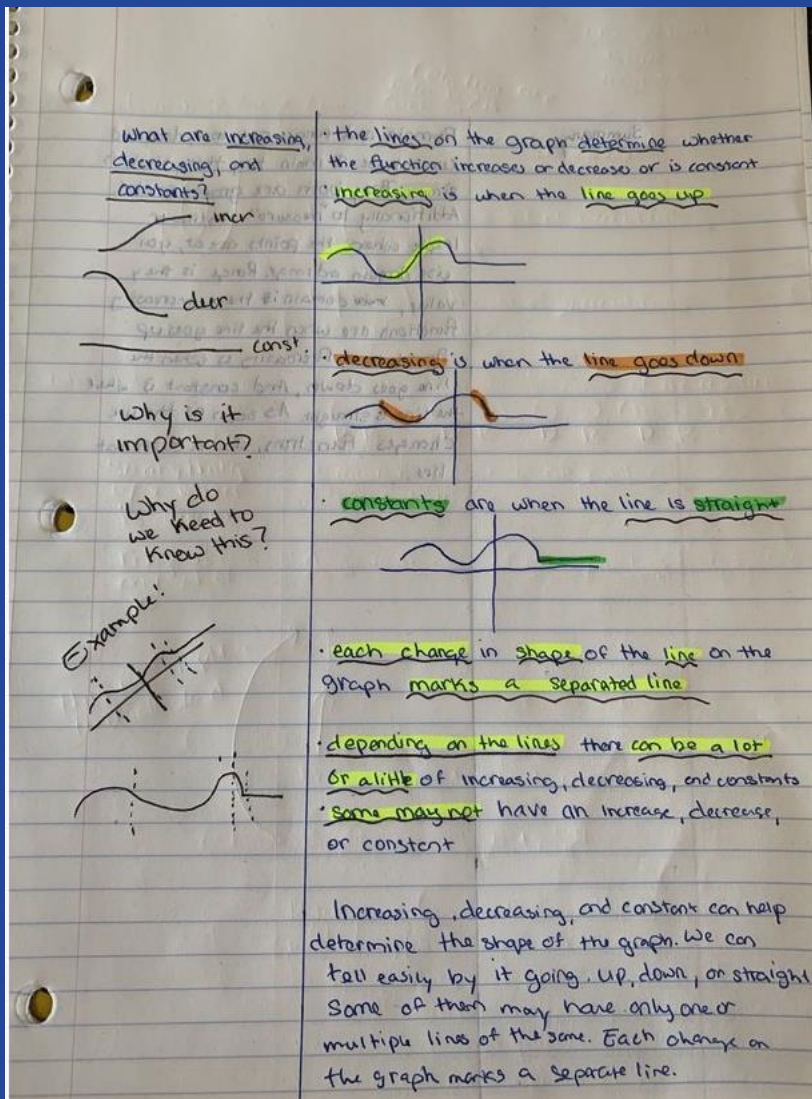 What are increasing,
decreasing, and
constants?
incr
decr
const.
Why is it
important?
Why do
we need to
know this?
Example!
· the lines on the graph determine whether
the function increases or decrease or is constant
· increasing is when the line goes up
· decreasing is when the line goes down
· constants are when the line is straight
· each change in shape of the line on the
graph marks a separated line
· depending on the lines there can be a lot
or a little of increasing, decreasing, and constants
· some may not have an increase, decrease,
or constant
Increasing, decreasing, and constant can help
determine the shape of the graph. We can
tell easily by it going up, down, or straight
Some of them may have only one or
multiple lines of the same. Each change on
the graph marks a separate line.